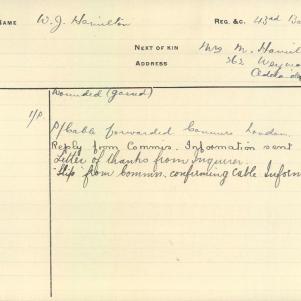 NAME W. J. Hamilton REG. &C. 43rd Ba
NEXT OF KIN Mrs M. Hamil
ADDRESS 262 Weym
Adelaide
Wounded (gassed)
P/Cable forwarded Commrs London.
Reply from Commrs. Information sent
Letter of thanks from Inquirer.
"Slip" from Commrs. confirming Cable Inform